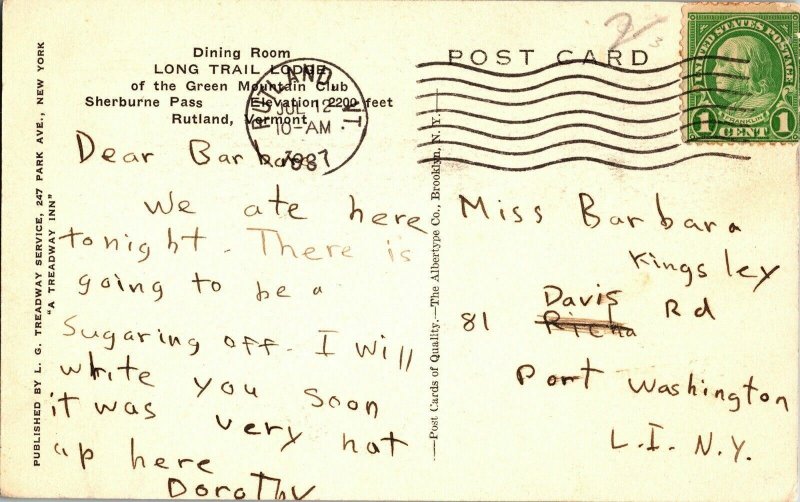 Dining Room
LONG TRAIL LODGE
of the Green Mountain Club
Sherburne Pass Elevation 2200 feet
Rutland, Vermont
POST CARD
RUTLAND, VT.
JUL 12
10-AM
1937
UNITED STATES POSTAGE
FRANKLIN
1 CENT 1
PUBLISHED BY L. G. TREADWAY SERVICE, 247 PARK AVE., NEW YORK
"A TREADWAY INN"
Dear Barbara
We ate here
tonight. There is
going to be a
sugaring off. I will
write you soon
it was very hot
up here
Dorothy
—Post Cards of Quality.—The Albertype Co., Brooklyn, N. Y.—
Miss Barbara
Kingsley
81 Davis Rd
Port Washington
L.I. N.Y.